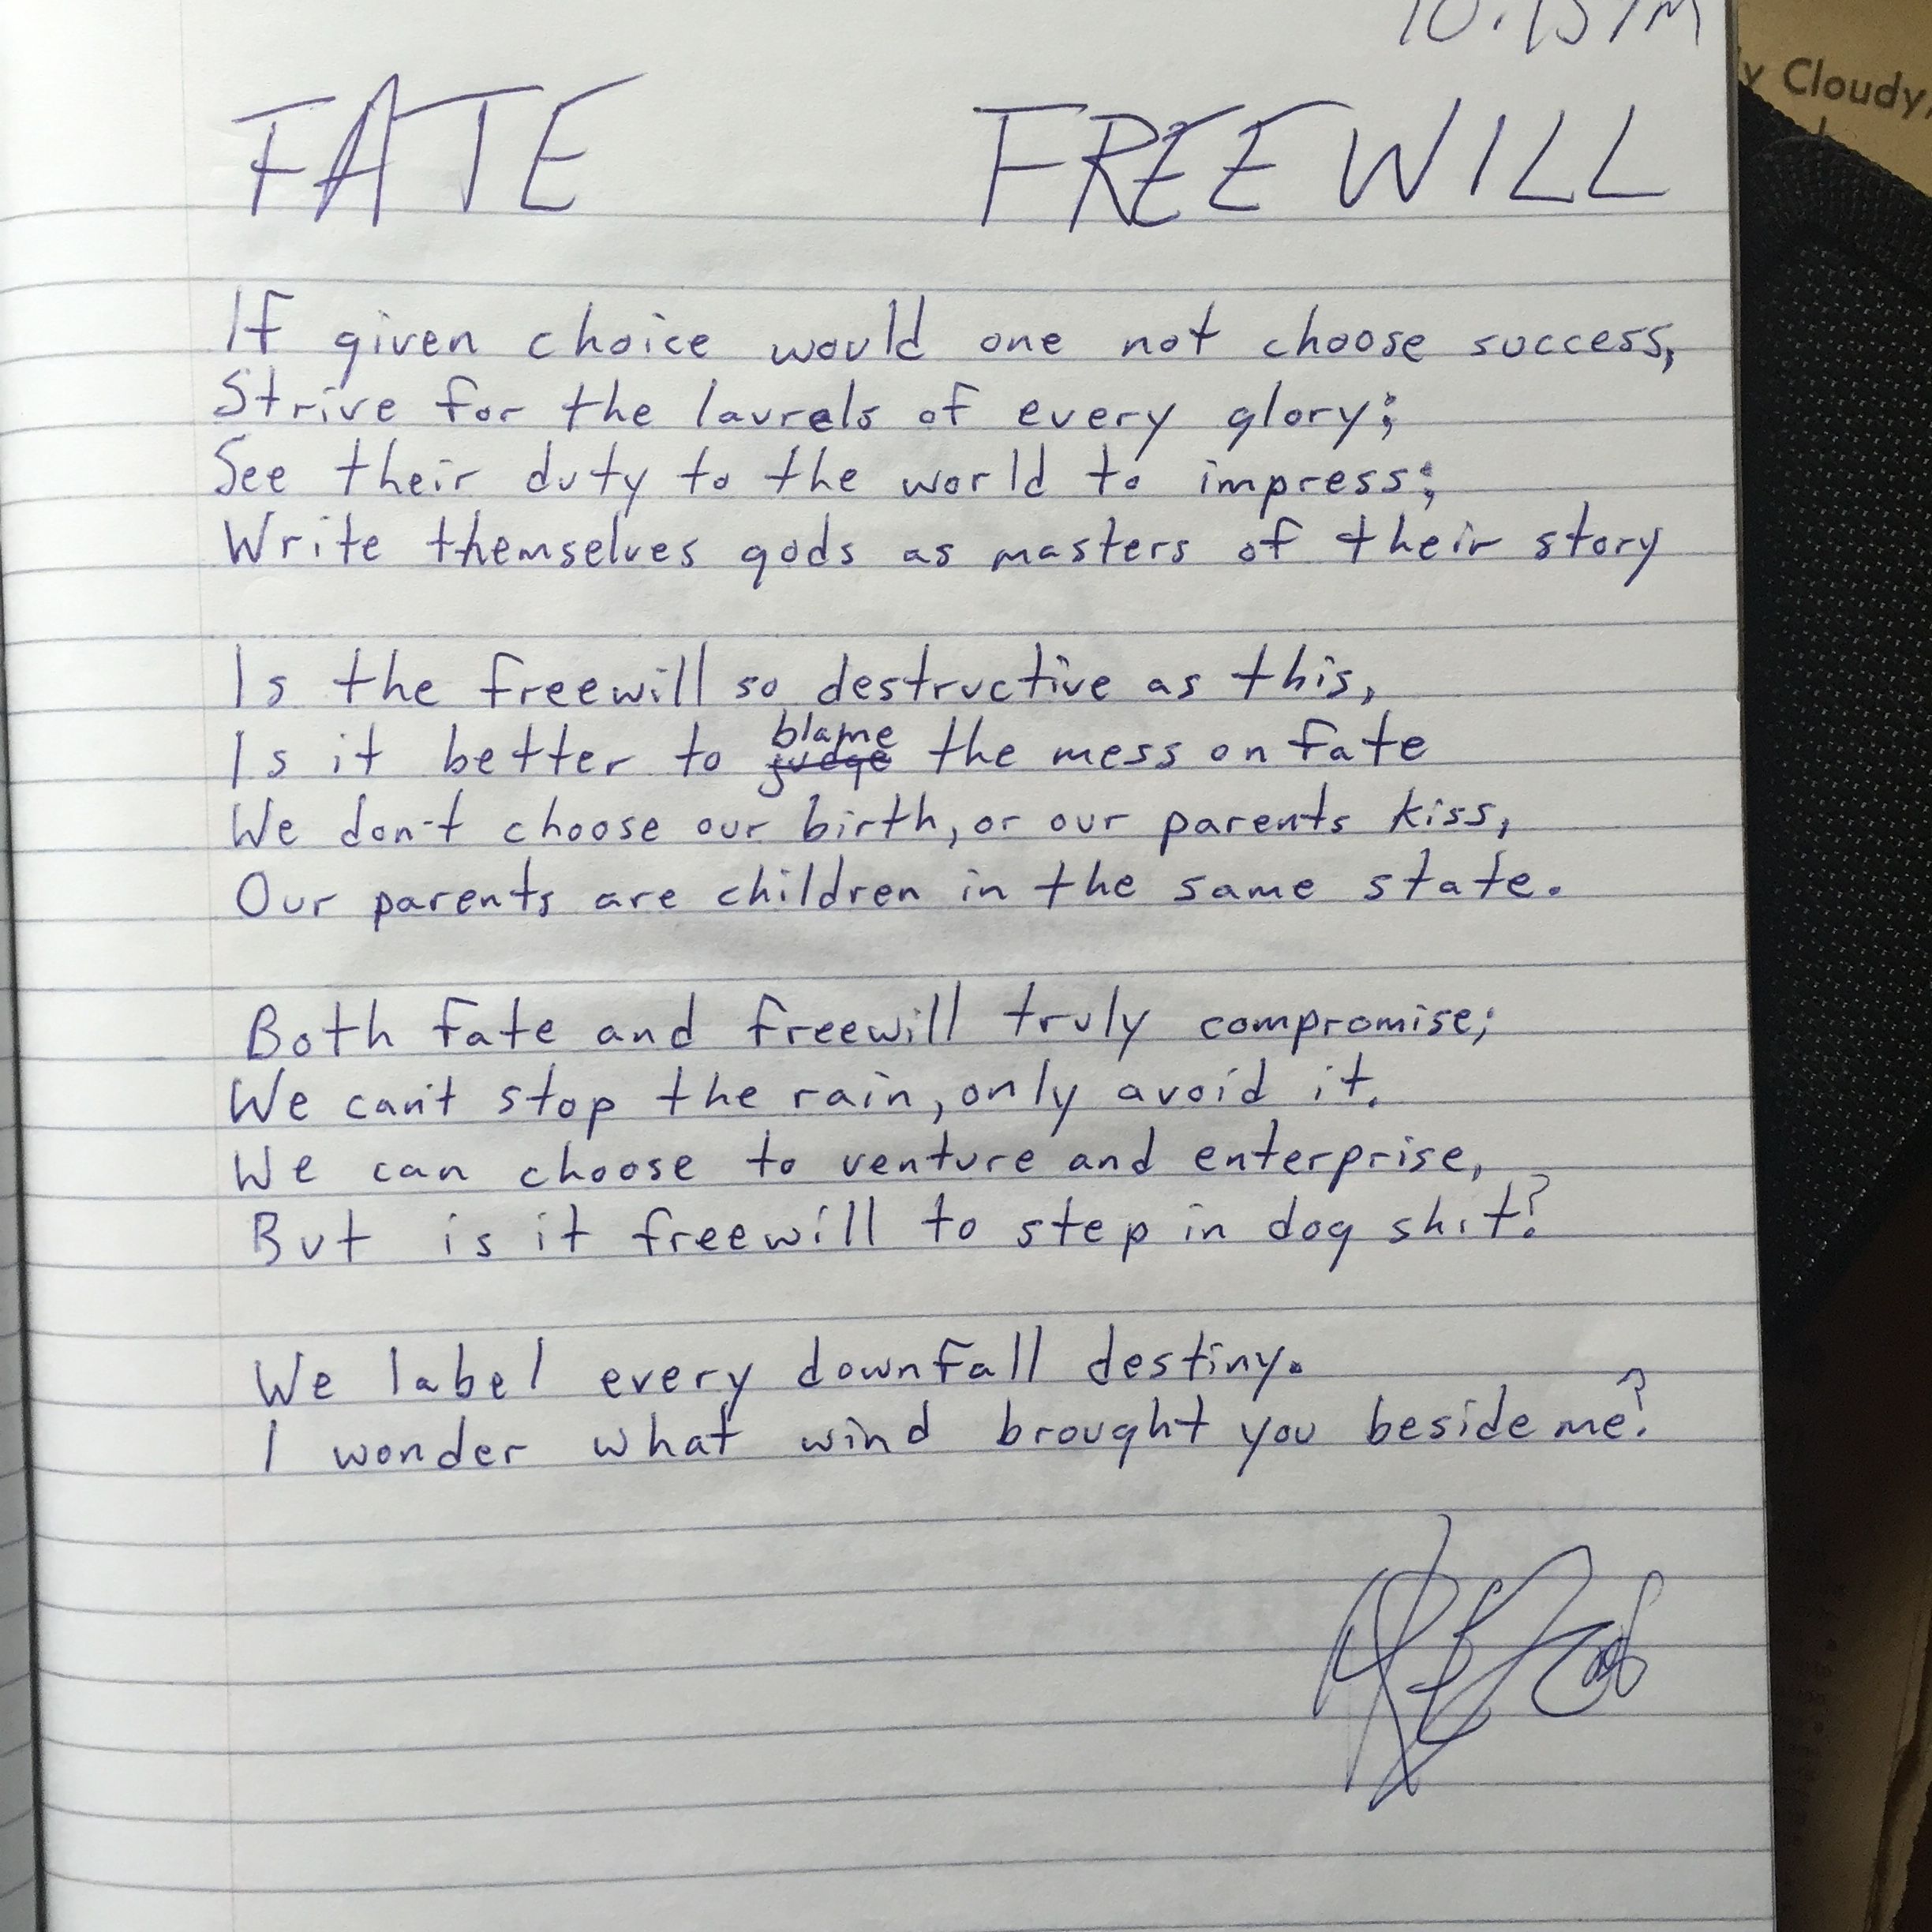 FATE FREEWILL
If given choice would one not choose success,
Strive for the laurels of every glory;
See their duty to the world to impress;
Write themselves gods as masters of their story
Is the freewill so destructive as this,
Is it better to judge blame the mess on fate
We don't choose our birth, or our parents kiss,
Our parents are children in the same state.
Both fate and freewill truly compromise;
We can't stop the rain, only avoid it.
We can choose to venture and enterprise,
But is it freewill to step in dog shit?
We label every downfall destiny.
I wonder what wind brought you beside me?
Cloudy,